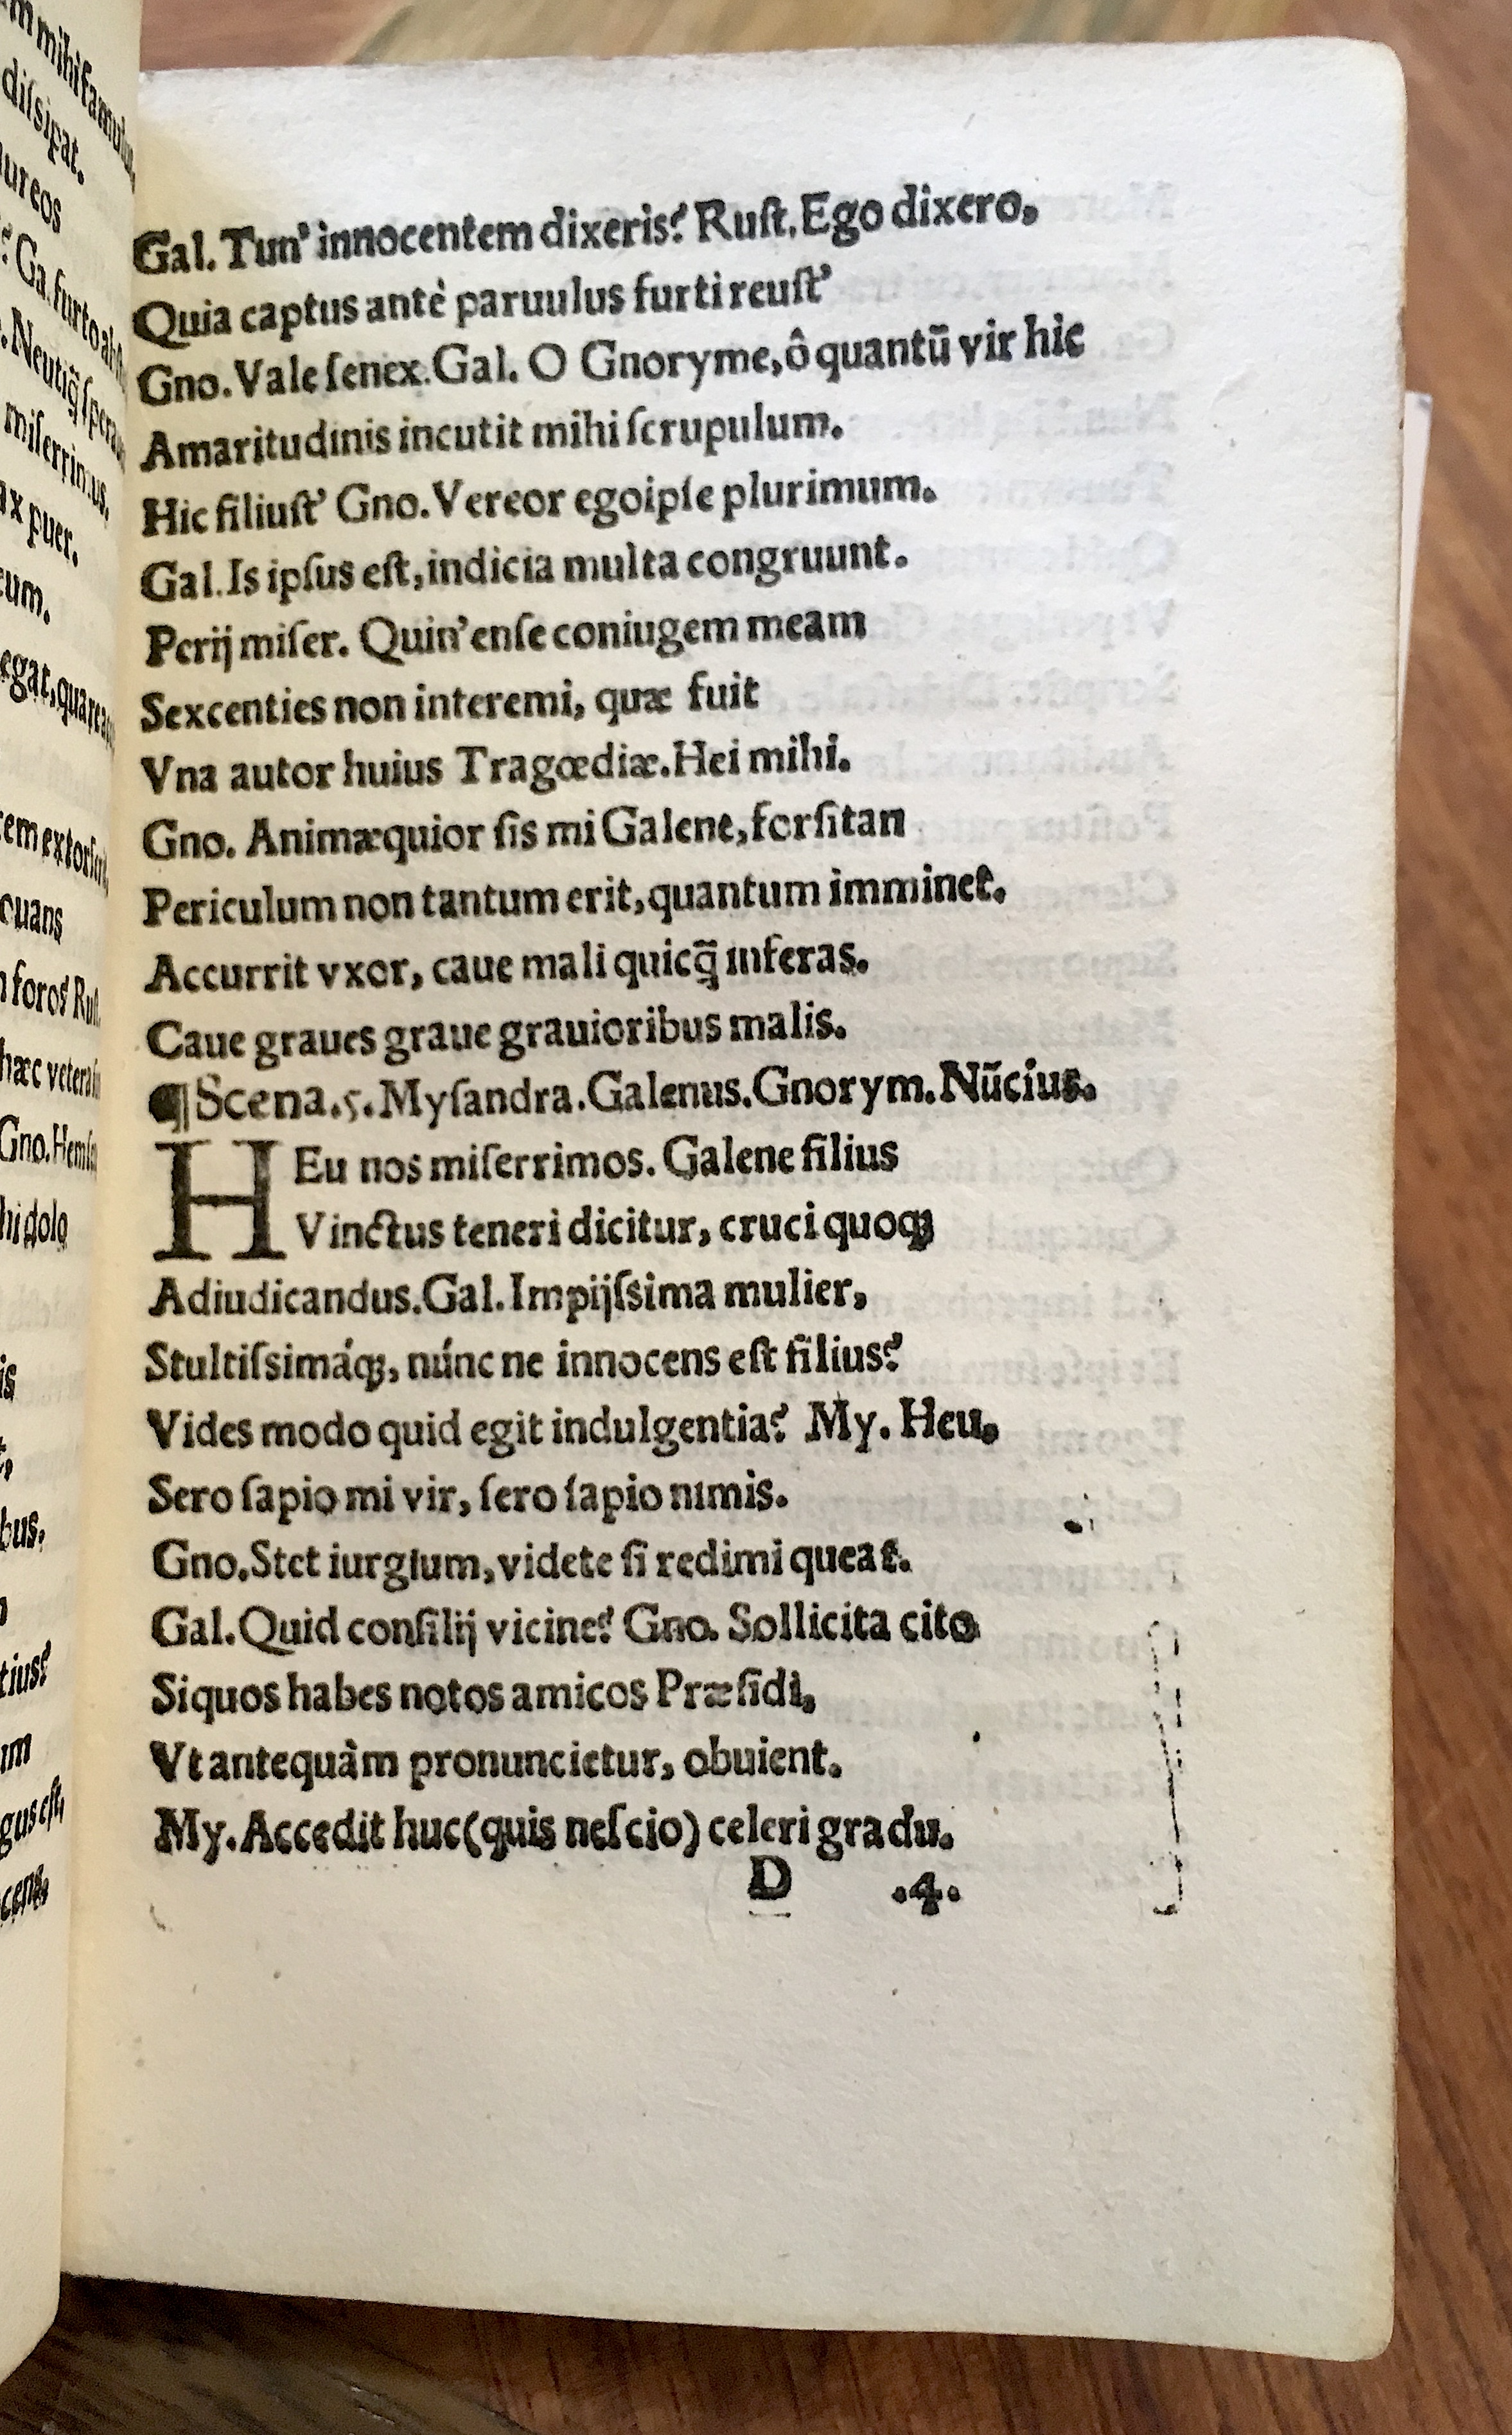 m mihi famulu
diſsipat.
ureos
Ga. furto
Neutiq̃ ſpera
miſerrimus,
ax puer.
eum.
egat, quare
tem extor
ouans
foro? Ruſ.
hæc vetera
Gno. Hem
hi dolo
is
t,
bus,
tius?
um
gus eſt,
Gal. Tun' innocentem dixeris? Ruſt. Ego dixero,
Quia captus antè paruulus furti reuſt'
Gno. Vale ſenex. Gal. O Gnoryme, ô quantũ vir hic
Amaritudinis incutit mihi ſcrupulum.
Hic filiuſt' Gno. Vereor egoipſe plurimum.
Gal. Is ipſus eſt, indicia multa congruunt.
Perij miſer. Quin' enſe coniugem meam
Sexcenties non interemi, quæ fuit
Vna autor huius Tragœdiæ. Hei mihi.
Gno. Animæquior ſis mi Galene, forſitan
Periculum non tantum erit, quantum imminet.
Accurrit vxor, caue mali quicq̃ inferas.
Caue graues graue grauioribus malis.
¶ Scena. 5. Myſandra. Galenus. Gnorym. Nũcius.
HEu nos miſerrimos. Galene filius
Vinctus teneri dicitur, cruci quoqꝫ
Adiudicandus. Gal. Impijſsima mulier,
Stultiſsimáqꝫ, núnc ne innocens eſt filius?
Vides modo quid egit indulgentia? My. Heu,
Sero ſapio mi vir, ſero ſapio nimis.
Gno. Stet iurgium, videte ſi redimi queat.
Gal. Quid conſilij vicine? Gno. Sollicita cito
Siquos habes notos amicos Præſidi,
Vt antequàm pronuncietur, obuient.
My. Accedit huc (quis neſcio) celeri gradu.
D .4.